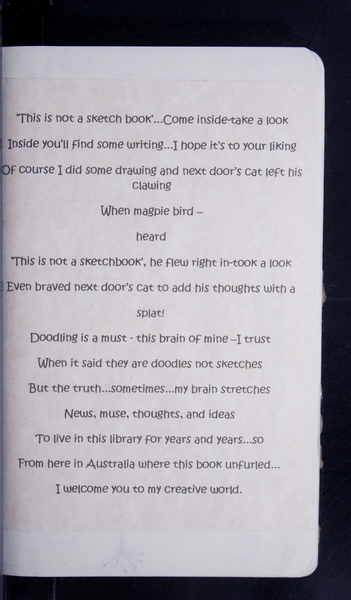 'This is not a sketch book'...Come inside-take a look
Inside you'll find some writing...I hope it's to your liking
Of course I did some drawing and next door's cat left his
clawing
When magpie bird –
heard
'This is not a sketchbook', he flew right in-took a look
Even braved next door's cat to add his thoughts with a
splat!
Doodling is a must - this brain of mine –I trust
When it said they are doodles not sketches
But the truth...sometimes...my brain stretches
News, muse, thoughts, and ideas
To live in this library for years and years...so
From here in Australia where this book unfurled...
I welcome you to my creative world.